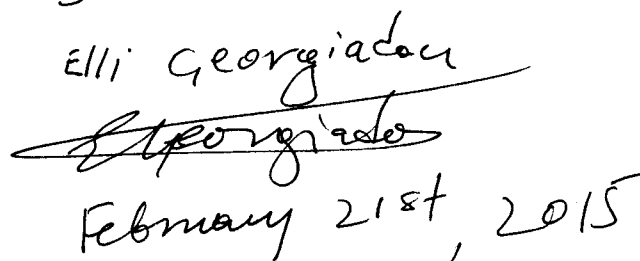 Elli Georgiadou
EGeorgiadou
February 21st, 2015